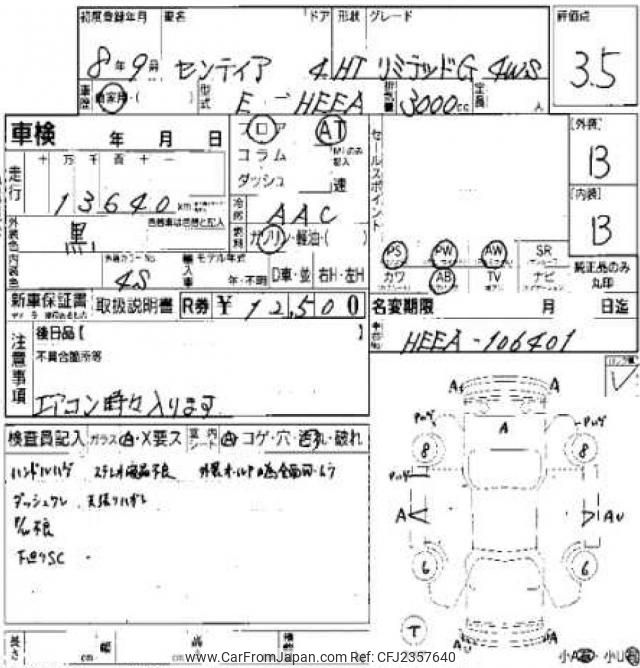 初度登録年月 車名 ドア 形状 グレード 評価点
8年9月 センティア 4 HT リミテッドG 4WS 3.5
車歴 自家用・( ) 型式 E-HEEA 排気量 3000cc 定員 人
車検 年 月 日 フロア AT セールスポイント [外装]
十 万 千 百 十 一 コラム B
走行 ダッシュ 速 [内装]
13640 km 冷房 AAC B
外装色 黒 燃料 ガソリン・軽油・( )
PS PW AW SR 純正品のみ丸印
内装色 外装カラーNo. 輸入車 モデル年式 カワ AB TV ナビ
4S 年・不明 D車・並 右H・左H
新車保証書 取扱説明書 R券 ¥12,500 名変期限 月 日迄
車台No. HEEA-106401
注意事項 後日品【 】
不具合箇所等
エアコン時々入ります
検査員記入 ガラス A・X要ス 室内シート コゲ・穴・破れ
ハンドルハゲ ステレオ液晶不良
ダッシュワレ 天張りハガレ
不良
下廻りSC
A A
A
8 8
A AU
6 6
T
AU A
長さ cm 幅 cm 高さ cm
www.CarFromJapan.com Ref: CFJ2357640